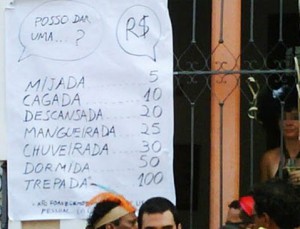 POSSO DAR
UMA...?
R$
MIJADA 5
CAGADA 10
DESCANSADA 20
MANGUEIRADA 25
CHUVEIRADA 30
DORMIDA 50
TREPADA 100
NÃO